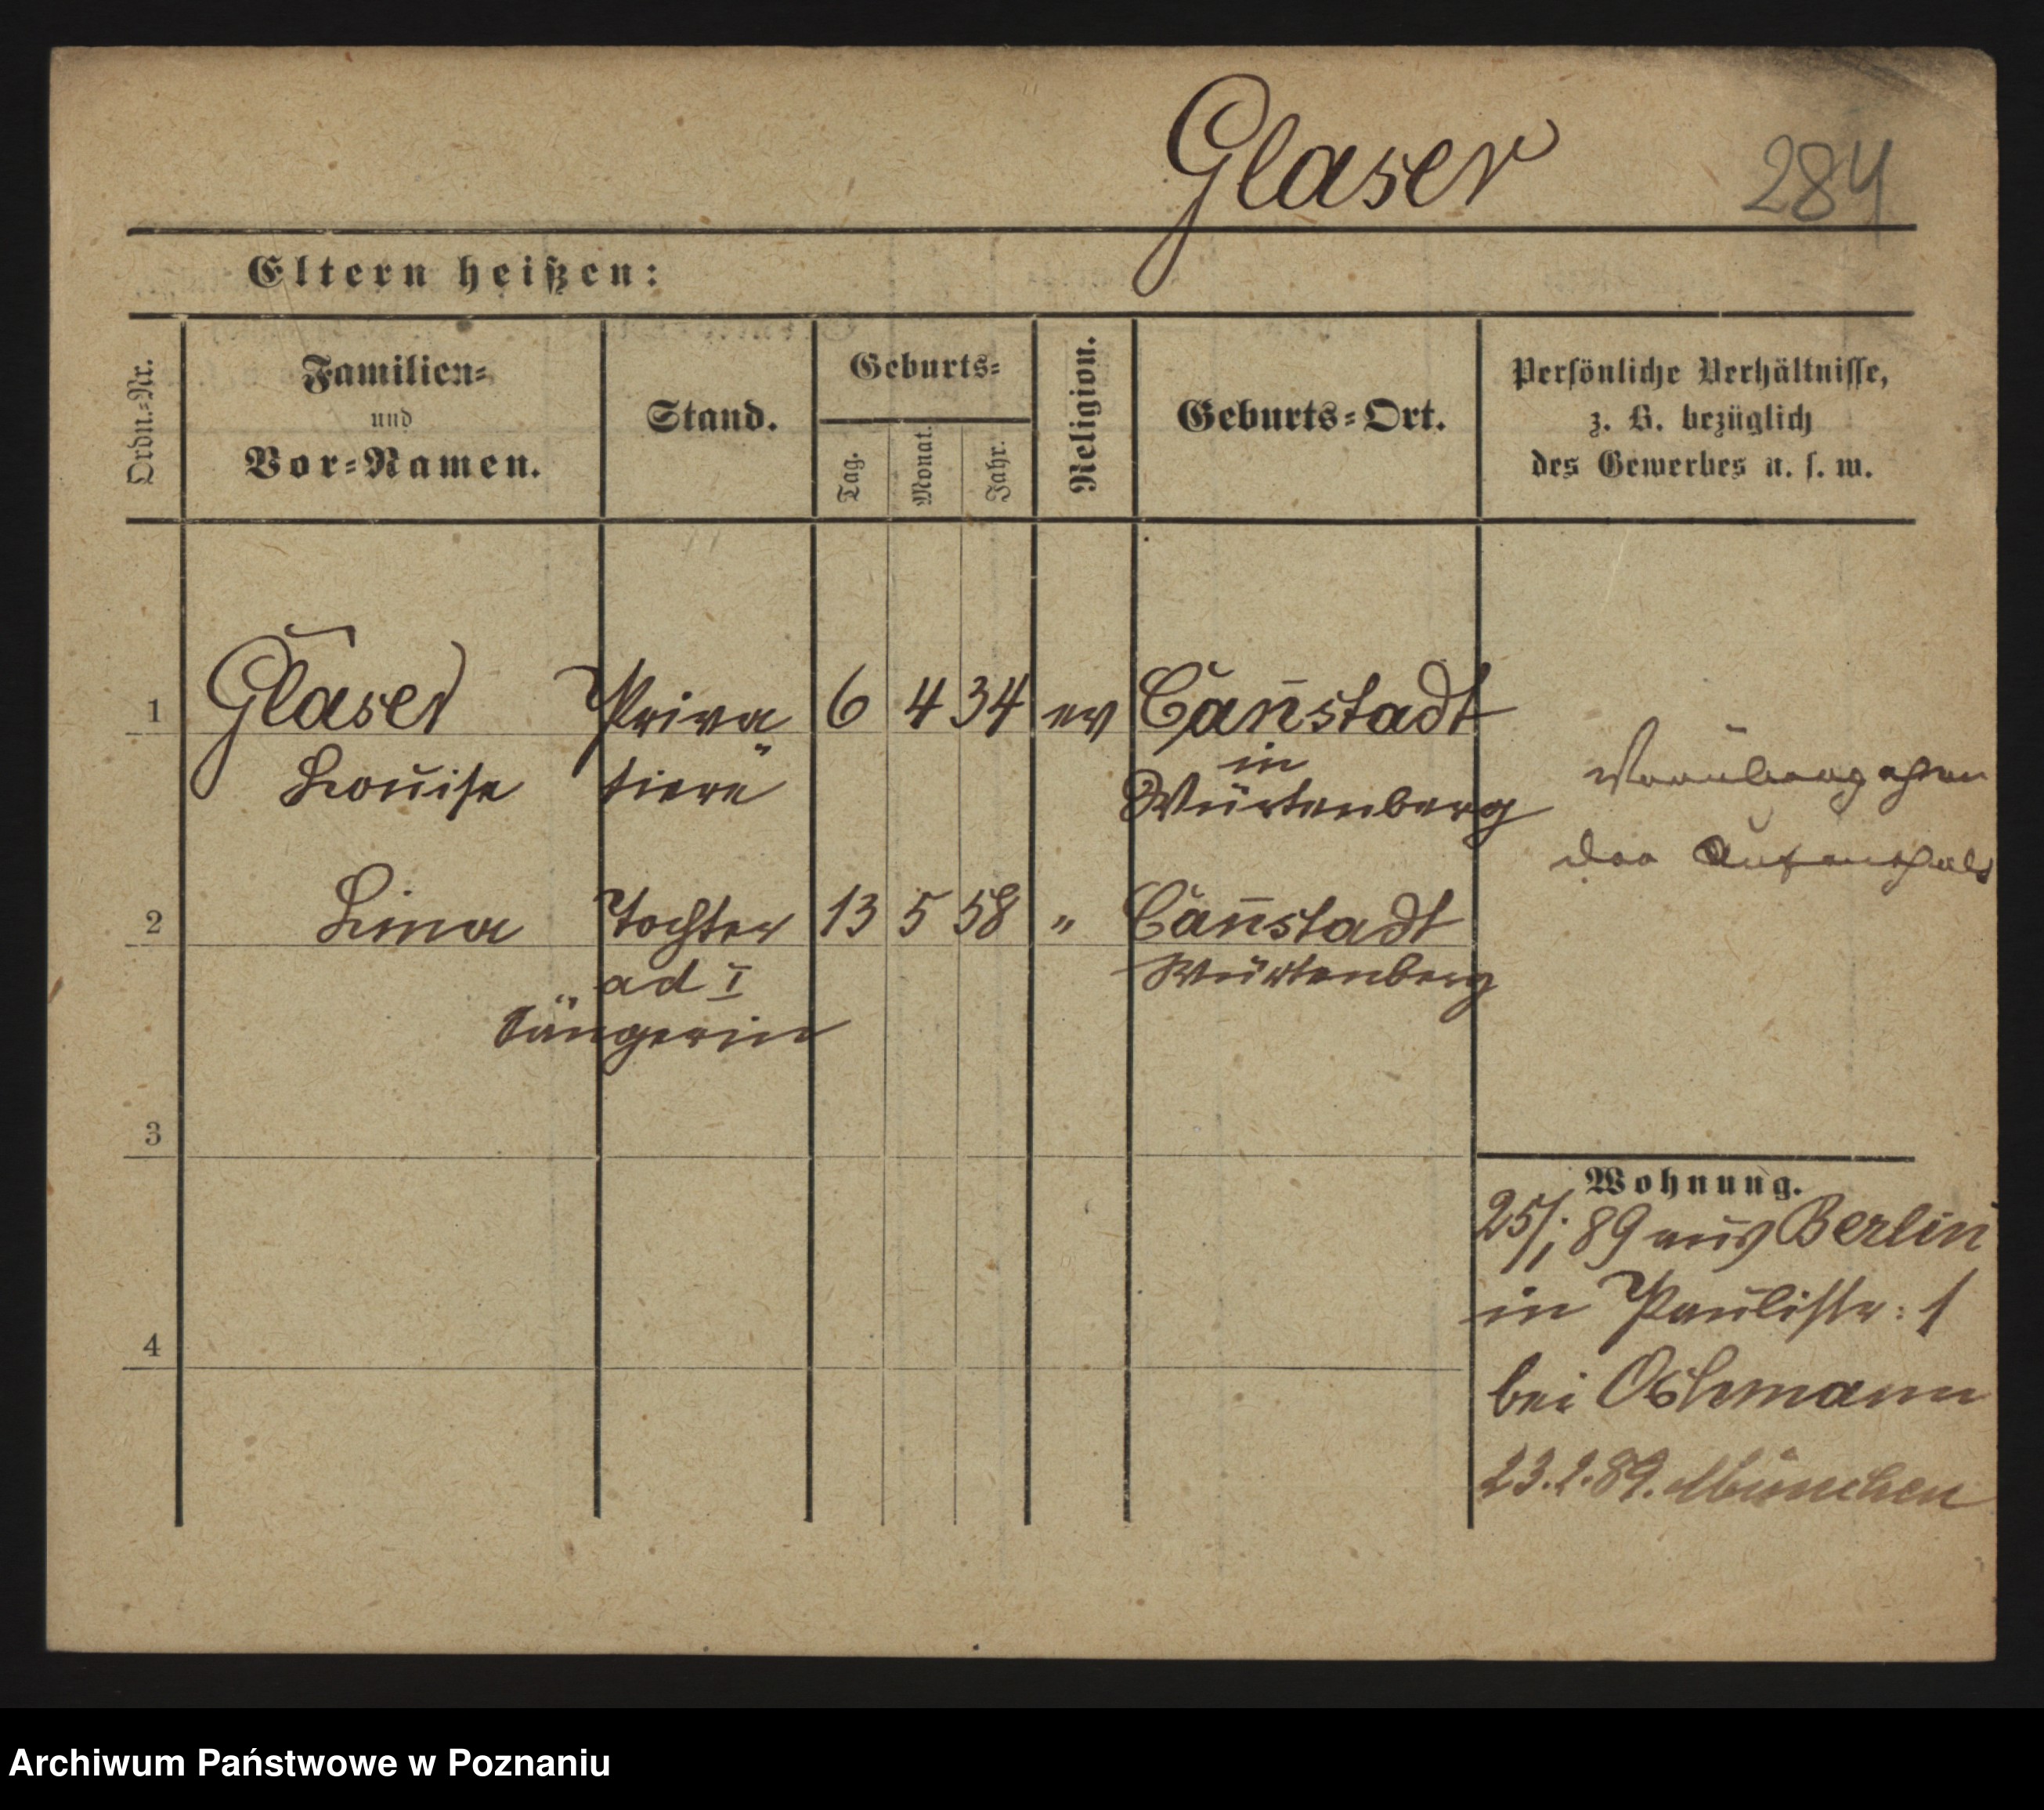 Glaser 284
Eltern heißen:
Ordn.-Nr.
Familien-
und
Vor-Namen.
Stand.
Geburts-
Tag.
Monat.
Jahr.
Religion.
Geburts-Ort.
Persönliche Verhältnisse,
z. B. bezüglich
des Gewerbes u. s. w.
1 Glaser Priva 6 4 34 ev Can̄stadt
Louise tiere in
Würtenberg
Vorübergehen
der Aufenthalt
2 Lina Tochter 13 5 58 " Can̄stadt
ad I Würtenberg
Sängerin
3
4
Wohnung.
25/1 89 aus Berlin
in Paulistr: 1
bei
23.2.89. München
Archiwum Państwowe w Poznaniu